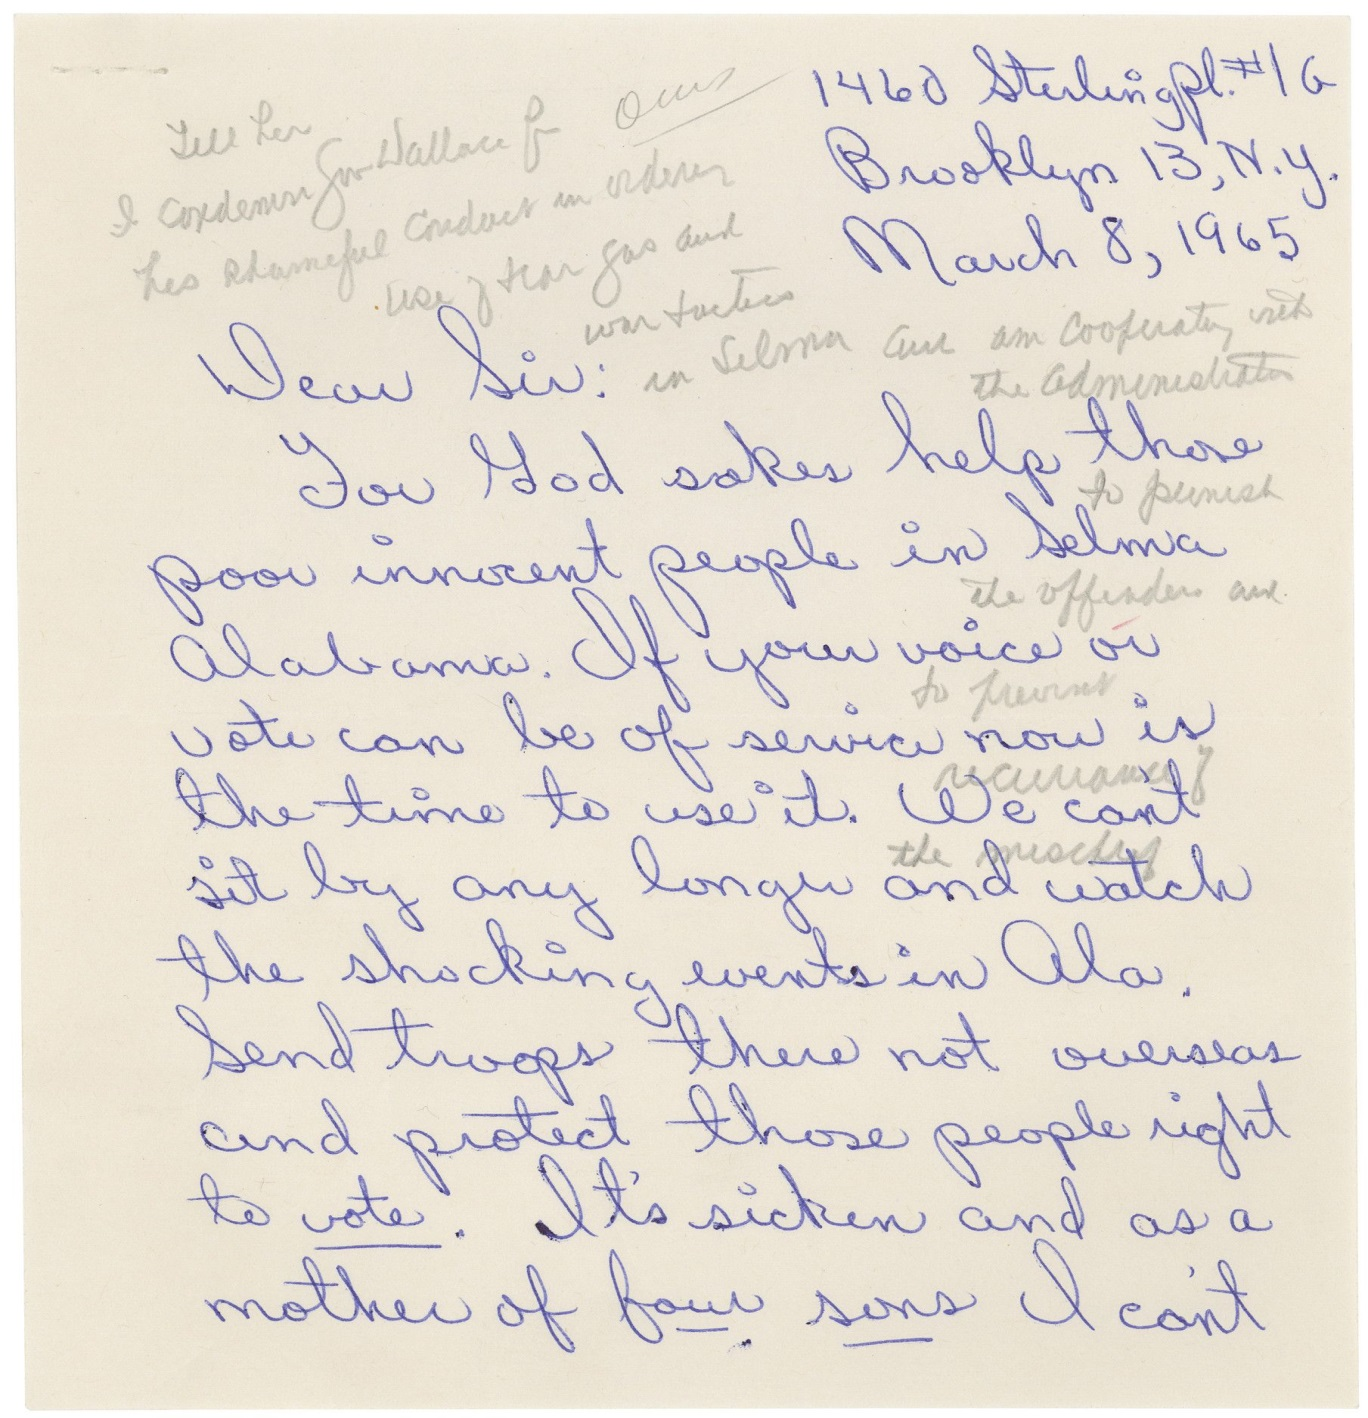 1460 Sterling Pl. #1G
Brooklyn 13, N.Y.
March 8, 1965
Tell her
I condemn Gov Wallace for
his shameful conduct in ordering
use of tear gas and
war tactics
in Selma and am cooperating with
the administration
to punish
the offenders and
to prevent
recurrance of
the mischief
Dear Sir:
For God sakes help those
poor innocent people in Selma
Alabama. If your voice or
vote can be of service now is
the time to use it. We can't
sit by any longer and watch
the shocking events in Ala.
Send troops there not overseas
and protect those people right
to vote. It's sicken and as a
mother of four sons I can't